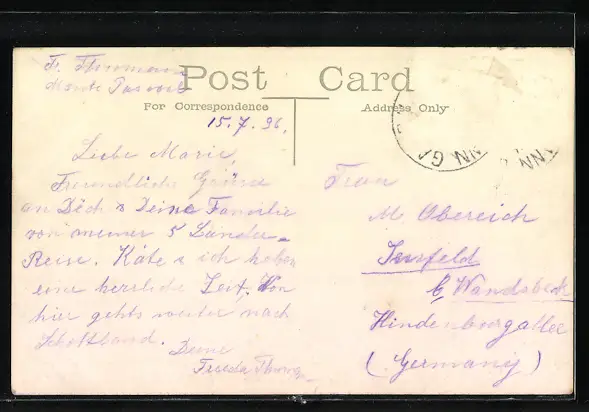 Post Card
For Correspondence
Address Only
15.7.36.
Liebe Marie,
Freundliche Grüsse
an Dich & Deine Familie
von meiner 5 Länder-
Reise. Käte & ich haben
eine herrliche Zeit. Von
hier gehts weiter nach
Schottland.
Deine
Frieda
Frau
M Obereich
Jenfeld
b/ Wandsbeck
Hindenburgallee
(Germany)